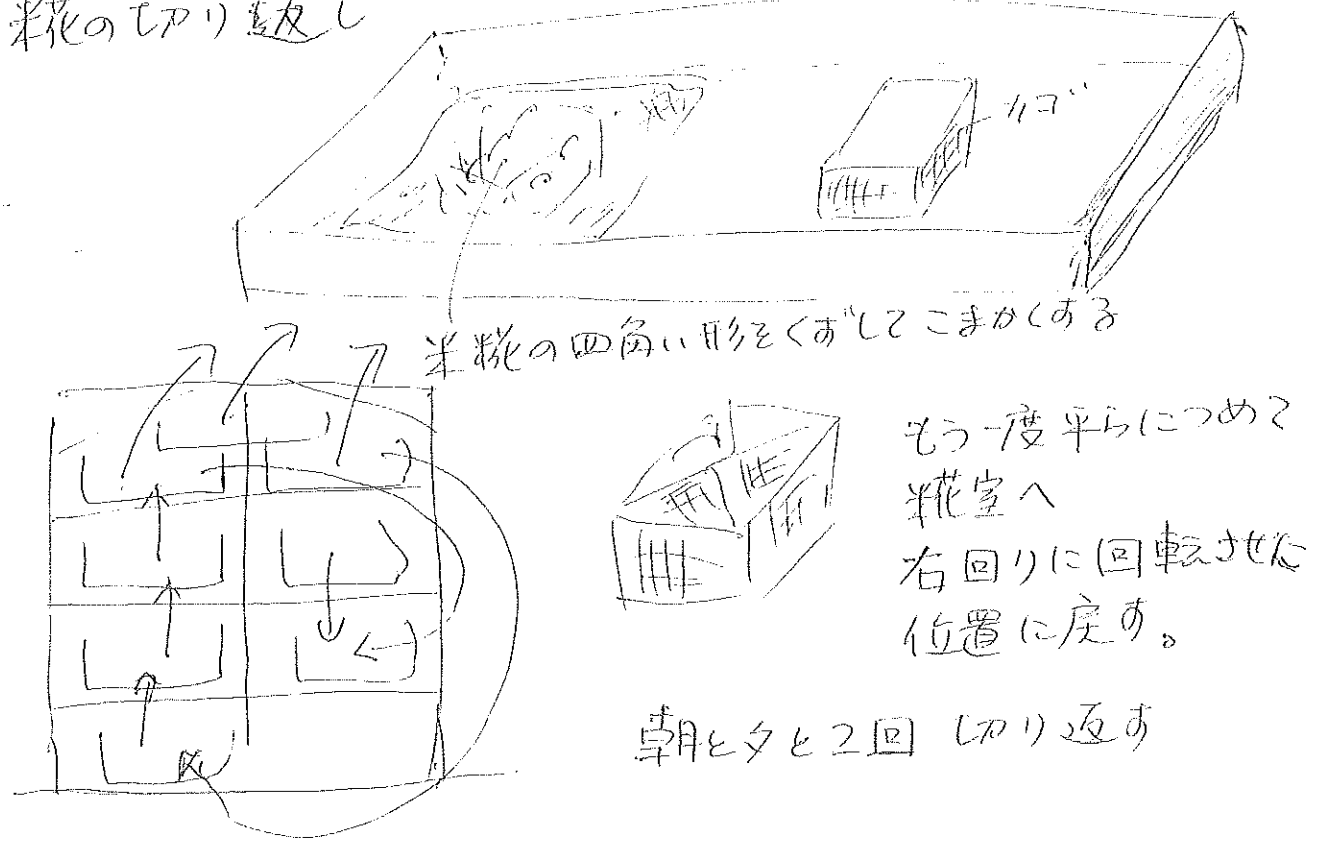 米糀の切り返し
カゴ
米糀の四角い形をくずしてこまかくする
もう一度平らにつめて
糀室へ
右回りに回転させた
位置に戻す。
朝と夕と2回 切り返す